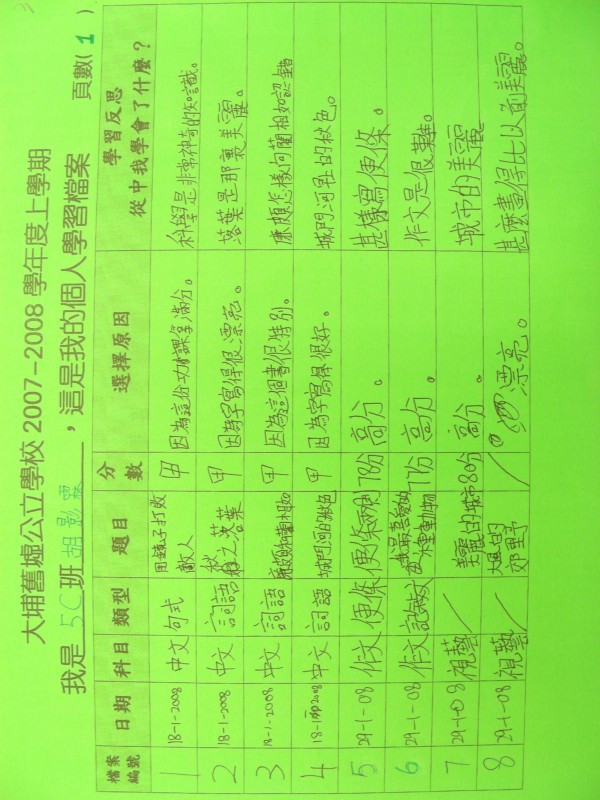 大埔舊墟公立學校 2007-2008 學年度上學期
我是 5C 班 胡影霖 ,這是我的個人學習檔案 頁數( 1 )
檔案編號 日期 科目 類型 題目 分數 選擇原因 學習反思 從中我學會了什麼?
1 18-1-2008 中文 句式 用鏡子打敗敵人 甲 因為這份功課拿滿分。 科學是非常神奇的知識。
2 18-1-2008 中文 詞語 秋之落葉 甲 因為字寫得很漂亮。 落葉是那裏美麗。
3 18-1-2008 中文 詞語 廉頗和藺相如 甲 因為這個書很特別。 廉頗怎樣向藺相如認錯
4 18-1-2008 中文 詞語 城門河的秋色 甲 因為字寫得很好。 城門河裡的秋色。
5 29-1-08 作文 便條 便條 78分 高分。 甚樣寫便條。
6 29-1-08 作文 記敘文 我最喜愛的一種動物 77分 高分。 作文是很難。
7 29-1-08 視藝 / 美麗的城市 80分 高分。 城市的美麗
8 29-1-08 視藝 / 大自然的郊野 / 漂亮。 甚麼畫得比以前美麗。